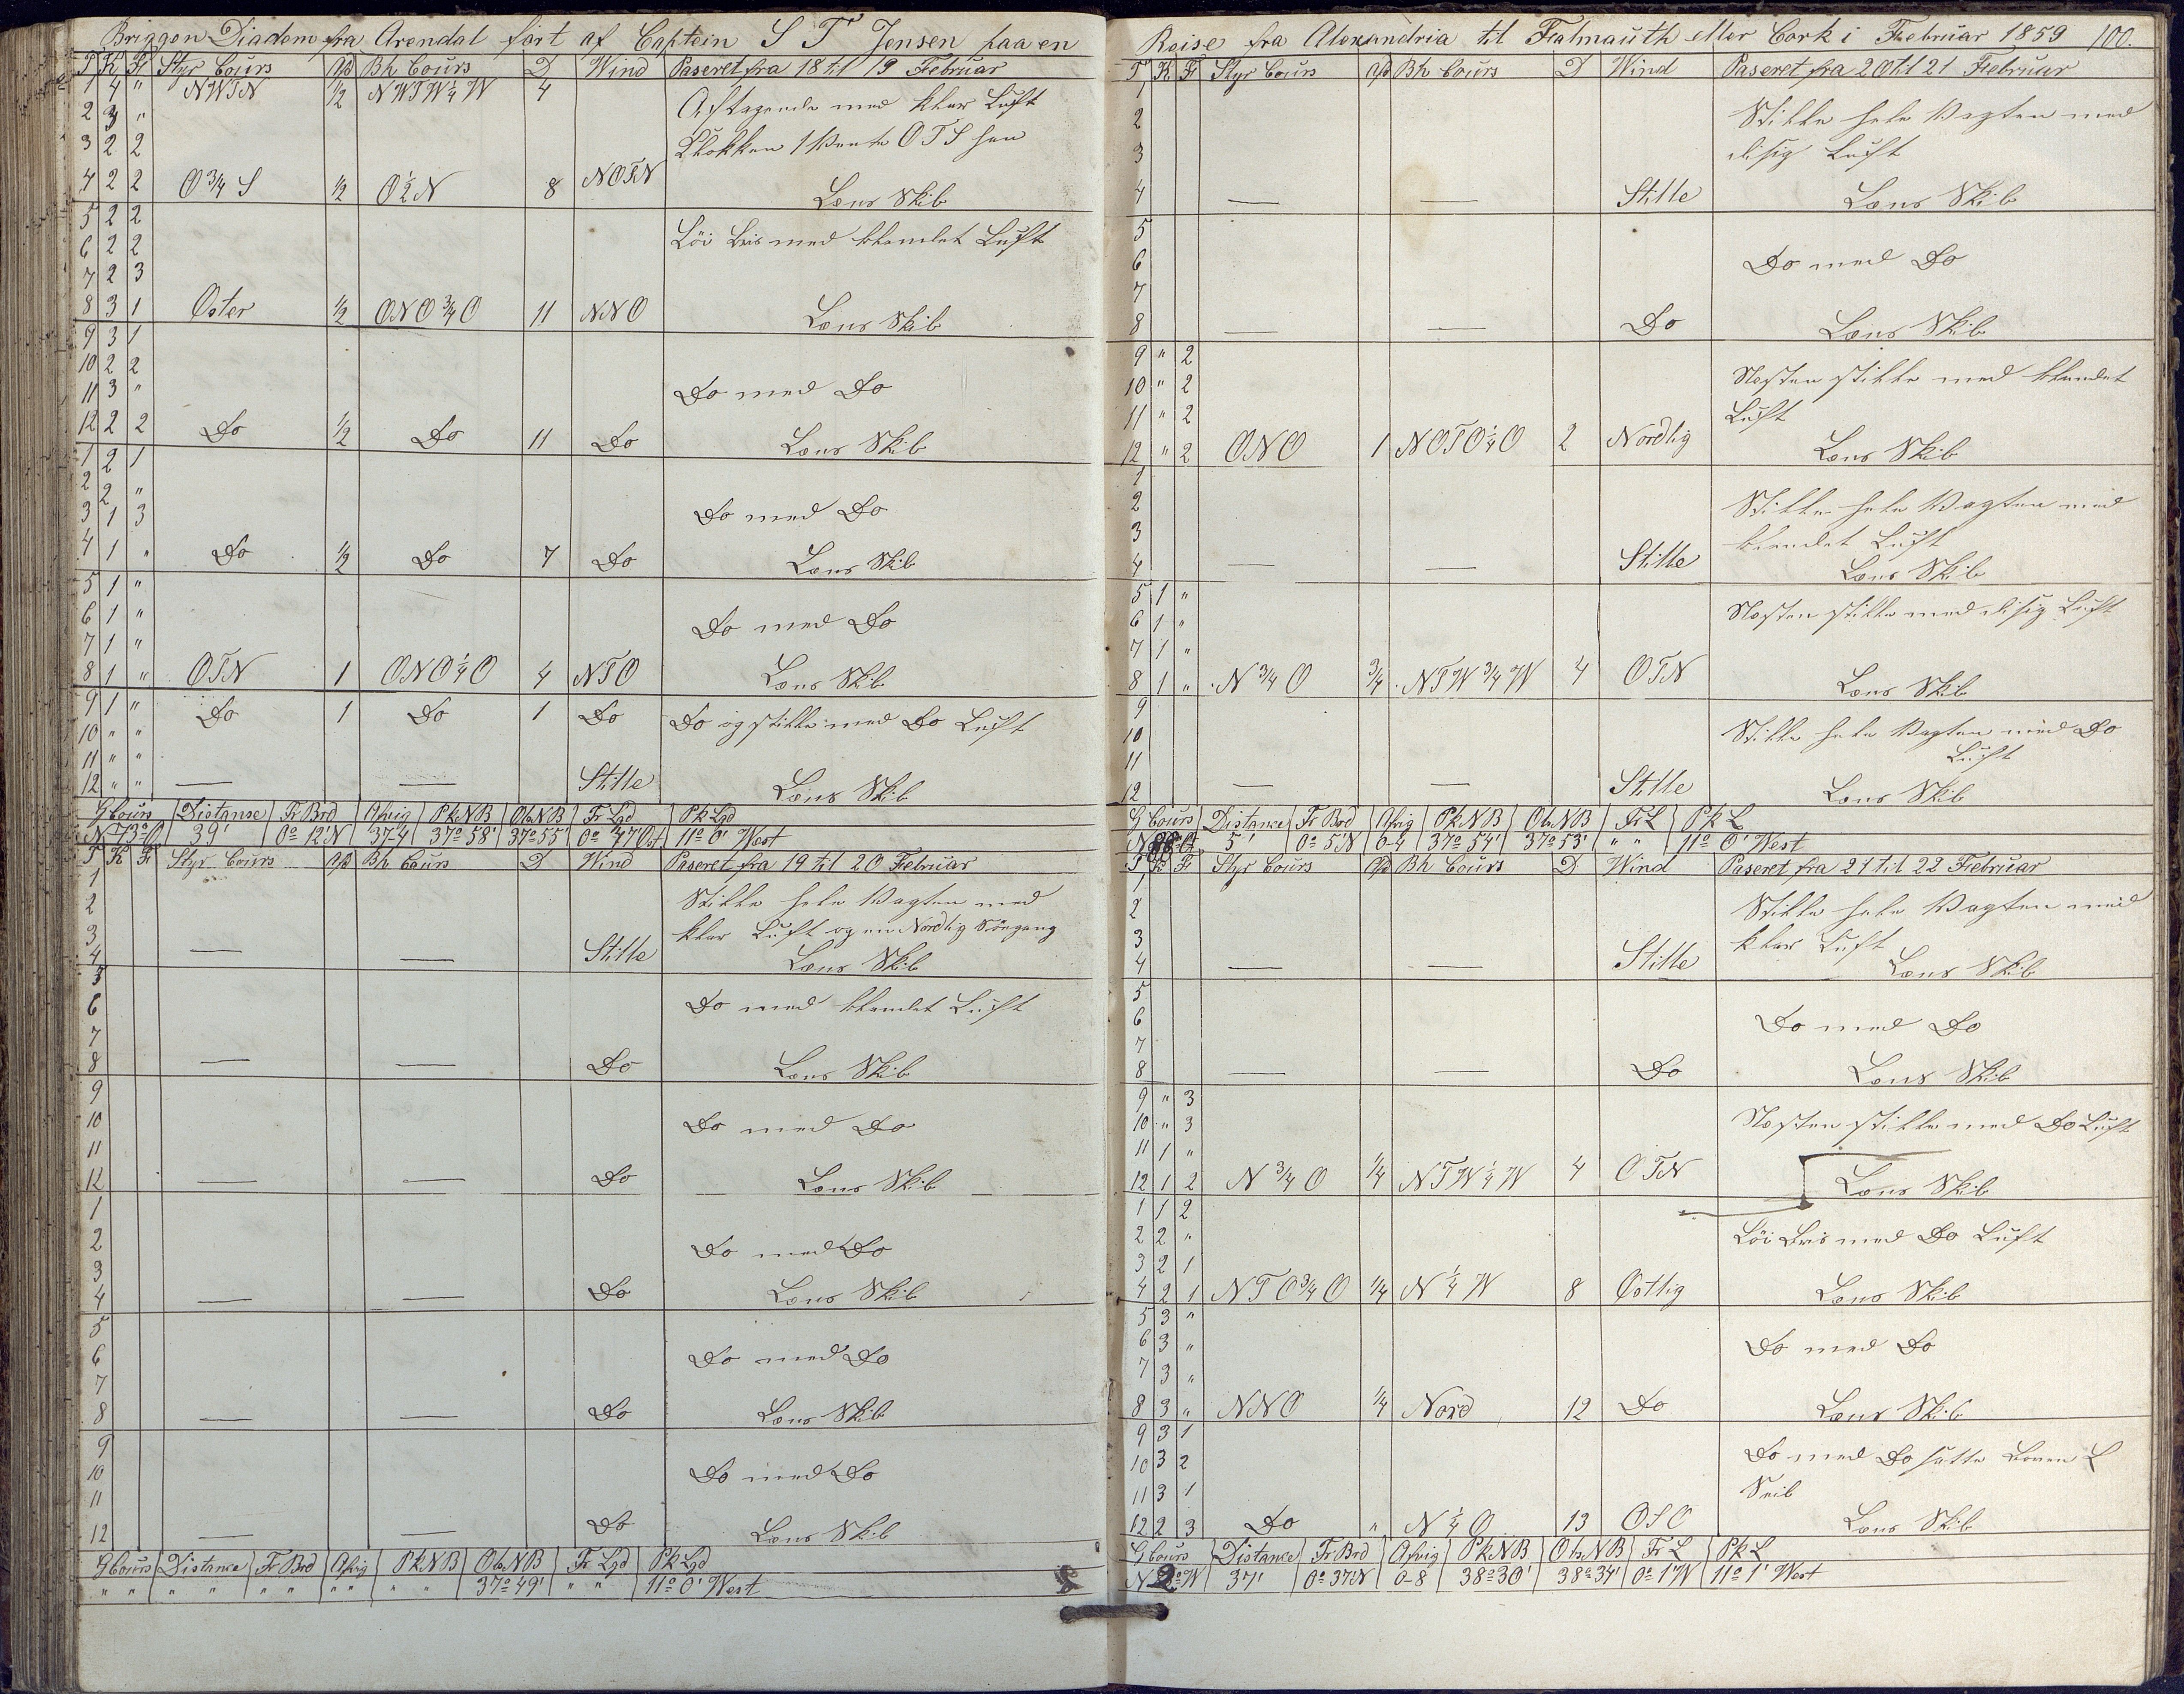 Briggen Diadem fra Arendal ført af Captein S T Jensen paa en
T K F Styr Cours Afd Bh Cours D Wind Paseret fra 18 til 19 Februar
1 4 " NWTN 1/2 NWTW 1/4 W 4
Aftagende med klar Luft
2 3 "
3 2 2 Klokken 1 Vente OTS hen
4 2 2 O 3/4 S 1/2 O 1/2 N 8 NOTN Lens Skib
5 2 2 Löi Bris med klendet Luft
6 2 2
7 2 3
8 3 1 Oster 1/2 ONO 3/4 O 11 NNO Lens Skib
9 3 1
10 2 2
11 3 " Do med Do
12 2 2 Do 1/2 Do 11 Do Lens Skib
1 2 1
2 2 "
3 1 3 Do med Do
4 1 " Do 1/2 Do 7 Do Lens Skib
5 1 "
6 1 " Do med Do
7 1 "
8 1 " OTN 1 ONO 1/4 O 4 NTO Lens Skib
9 1 " Do 1 Do 1 Do Do og stille med Do Luft
10 " "
11 " "
12 " " — — Stille Lens Skib
G Cours Distanse Fr Brd Afvig Pk NB Obs NB Fr Lgd Pk Lgd
N 73° O 39' 0° 12' N 37-4 37° 58' 37° 55' 0° 47' Ost 11° 0' West
T K F Styr Cours Afd Bh Cours D Wind Paseret fra 19 til 20 Februar
1
2 Stille hele Vagten med
3 klar Luft og en Nordlig Söegang
4 — — Stille Lens Skib
5
6 Do med klendet Luft
7
8 — — Do Lens Skib
9
10 Do med Do
11
12 — — Do Lens Skib
1
2 Do med Do
3
4 — — Do Lens Skib
5
6 Do med Do
7
8 — — Do Lens Skib
9
10 Do med Do
11
12 — — Do Lens Skib
G Cours Distance Fr Brd Afvig Pk NB Obs NB Fr Lgd Pk Lgd
" " " " " " " " " " 37° 49' " " 11° 0' West
Reise fra Alexandria til Fealmauth eller Cork i Februar 1859 100.
T K F Styr Cours Afd Bh Cours D Wind Paseret fra 20 til 21 Februar
1
2 Stille hele Vagten med
3 disig Luft
4 — — Stille Lens Skib
5
6 Do med Do
7
8 — — Do Lens Skib
9 " 2
10 " 2 Nesten stille med klendet
11 " 2 Luft
12 " 2 ONO 1 NOTO 1/4 O 2 Nordlig Lens Skib
1
2 Stille hele Vagten med
3 klendet Luft
4 — — Stille Lens Skib
5 1 "
6 1 " Nesten stille med disig Luft
7 1 "
8 1 " N 3/4 O 3/4 NTW 3/4 W 4 OTN Lens Skib
9
10 Stille hele Vagten med Do
11 Luft
12 — — Stille Lens Skib
G Cours Distance Fr Brd Afvig Pk NB Obs NB Fr L Pk L
5' 0° 5' N 0-4 37° 54' 37° 53' " " 11° 0' West
T K F Styr Cours Afd Bh Cours D Wind Paseret fra 21 til 22 Februar
1
2 Stille hele Vagten med
3 klar Luft
4 — — Stille Lens Skib
5
6 Do med Do
7
8 — — Do Lens Skib
9 " 3
10 " 3 Nesten stille med Do Luft
11 1 "
12 1 2 N 3/4 O 1/4 NTW 1/4 W 4 OTN Lens Skib
1 1 2
2 2 " Löi Bris med Do Luft
3 2 1
4 2 1 NTO 3/4 O 1/4 N 1/4 W 8 Ostlig Lens Skib
5 3 "
6 3 " Do med Do
7 3 "
8 3 " NNO 1/4 Nord 12 Do Lens Skib
9 3 1
10 3 2 Do med Do satte Boven L
11 3 1 Seil
12 2 3 Do " N 1/4 O 13 OSO Lens Skib
G Cours Distance Fr Brd Afvig Pk NB Obs NB Fr L Pk L
N 2° W 37' 0° 37' N 0-8 38° 30' 38° 34' 0° 1' W 11° 1' West